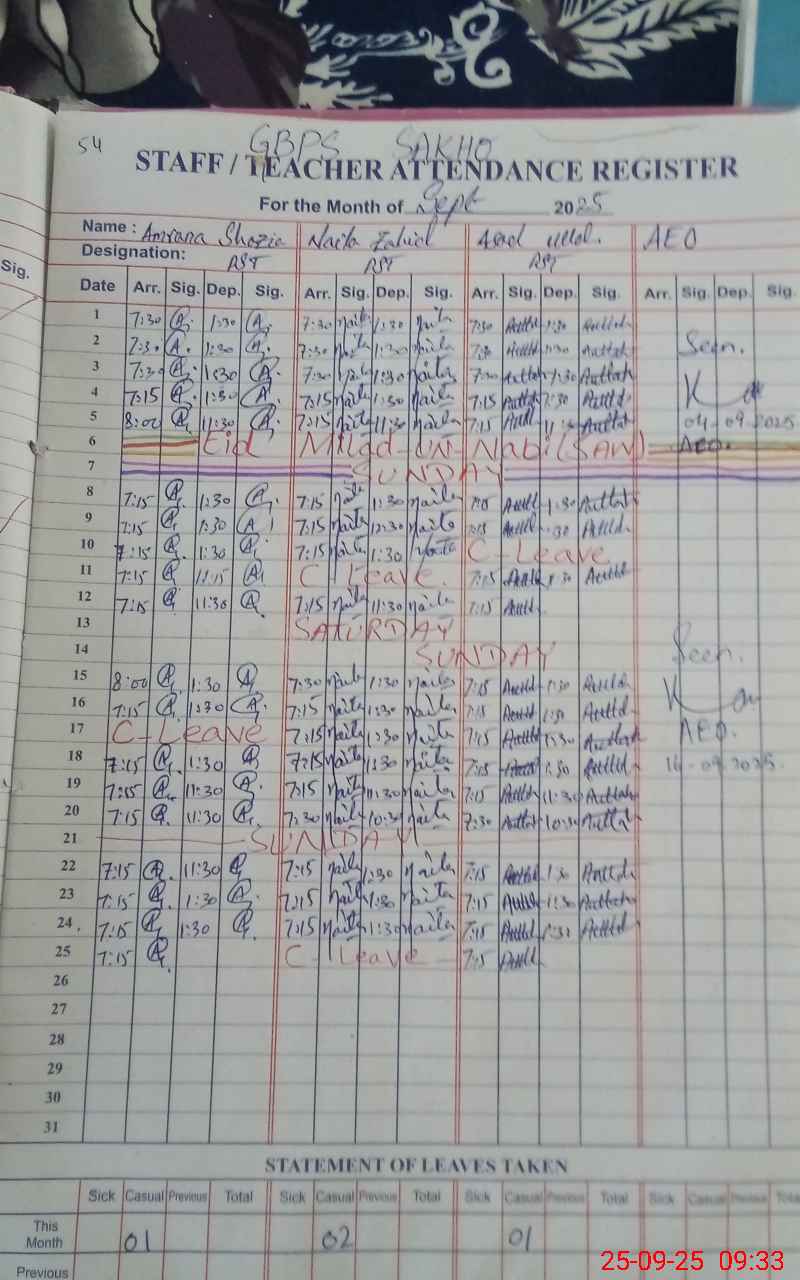 54 GBPS SAKHO
STAFF / TEACHER ATTENDANCE REGISTER
For the Month of Sept 2025
Name : Amrana Shazia Naila Zahid AEO
Designation: RST RST RST
Sig.
Date Arr. Sig. Dep. Sig. Arr. Sig. Dep. Sig. Arr. Sig. Dep. Sig. Arr. Sig. Dep. Sig.
1 7:30 1:30 7:30 Naila 1:30 Naila 7:30 1:30
2 7:30 1:30 7:30 Naila 1:30 Naila 7:30 1:30 Seen.
3 7:30 1:30 7:30 Naila 1:30 Naila 7:30 1:30
4 7:15 1:30 7:15 Naila 1:30 Naila 7:15 1:30
5 8:00 11:30 7:15 Naila 11:30 Naila 7:15 11:30 04-09-2025
6 Eid Milad-UN-Nabi (SAW) AEO.
7 SUNDAY
8 7:15 1:30 7:15 Naila 1:30 Naila 7:15 1:30
9 7:15 1:30 7:15 Naila 1:30 Naila 7:15 1:30
10 7:15 1:30 7:15 Naila 1:30 Naila C-Leave
11 7:15 11:15 C-Leave. 7:15 1:30
12 7:15 11:30 7:15 Naila 11:30 Naila 7:15
13 SATURDAY
14 SUNDAY Seen.
15 8:00 1:30 7:30 Naila 1:30 Naila 7:15 1:30
16 7:15 1:30 7:15 Naila 1:30 Naila 7:15 1:30
17 C-Leave 7:15 Naila 1:30 Naila 7:15 1:30 AEO.
18 7:15 1:30 7:15 Naila 1:30 Naila 7:15 1:30 16-09-2025.
19 7:15 11:30 7:15 Naila 11:30 Naila 7:15 11:30
20 7:15 11:30 7:30 Naila 10:30 Naila 7:30 10:30
21 SUNDAY
22 7:15 11:30 7:15 Naila 1:30 Naila 7:15 1:30
23 7:15 1:30 7:15 Naila 1:30 Naila 7:15 1:30
24 7:15 1:30 7:15 Naila 1:30 Naila 7:15 1:30
25 7:15 C-Leave 7:15
26
27
28
29
30
31
STATEMENT OF LEAVES TAKEN
Sick Casual Previous Total Sick Casual Previous Total Sick Casual Previous Total Sick Casual Previous Total
This Month 01 02 01
Previous
25-09-25 09:33